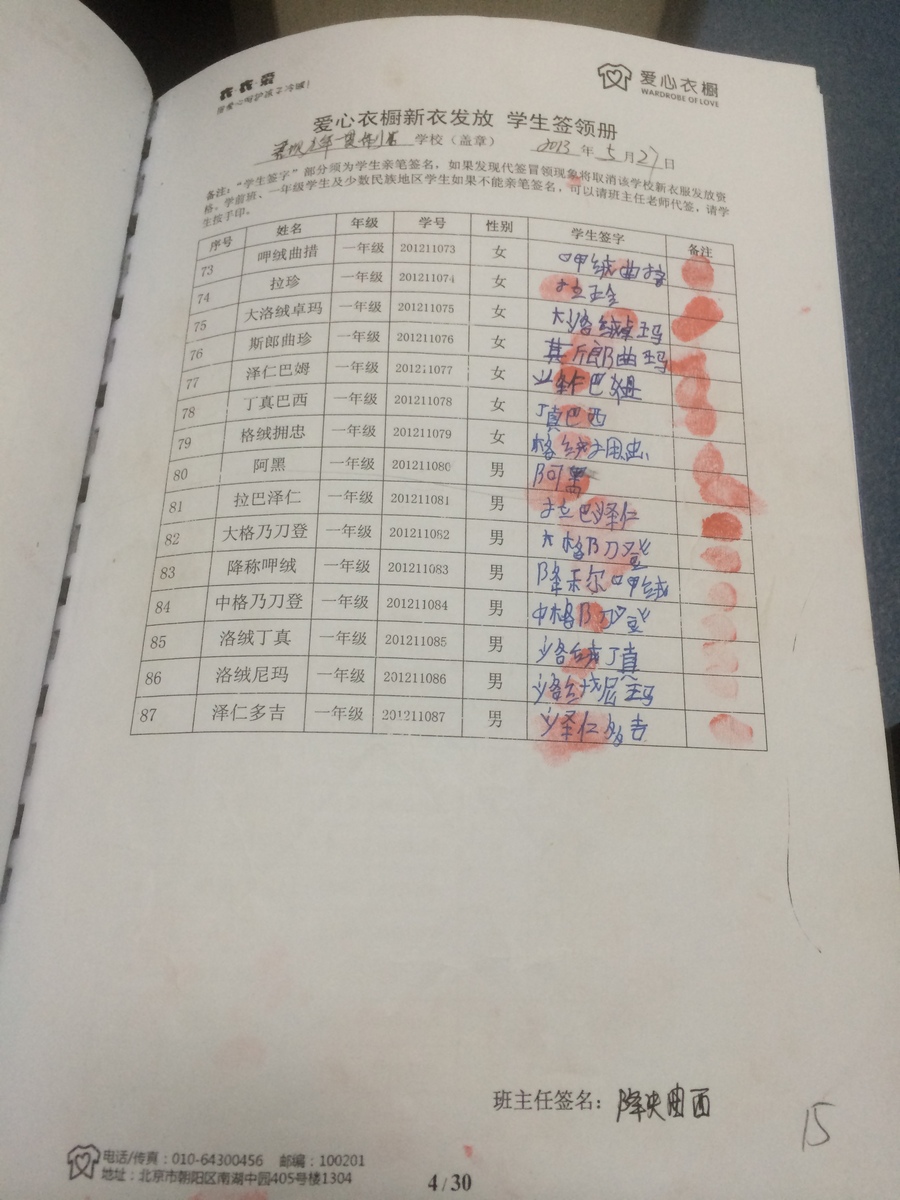 衣·衣·爱
爱心衣橱
WARDROBE OF LOVE
爱心衣橱新衣发放 学生签领册
学校（盖章） 2013 年 5 月 27 日
备注：“学生签字”部分须为学生亲笔签名，如果发现代签冒领现象将取消该学校新衣服发放资
格。学前班、一年级学生及少数民族地区学生如果不能亲笔签名，可以请班主任老师代签，请学
生按手印。
序号 姓名 年级 学号 性别 学生签字 备注
73 呷绒曲措 一年级 201211073 女 呷绒曲措
74 拉珍 一年级 201211074 女 拉
75 大洛绒卓玛 一年级 201211075 女 大洛绒卓玛
76 斯郎曲珍 一年级 201211076 女 斯郎曲玛
77 泽仁巴姆 一年级 201211077 女 泽仁巴姆
78 丁真巴西 一年级 201211078 女 丁真巴西
79 格绒拥忠 一年级 201211079 女 格绒拥忠
80 阿黑 一年级 201211080 男 阿黑
81 拉巴泽仁 一年级 201211081 男 拉巴泽仁
82 大格乃刀登 一年级 201211082 男 大格乃刀登
83 降称呷绒 一年级 201211083 男 降称呷绒
84 中格乃刀登 一年级 201211084 男 中格乃刀登
85 洛绒丁真 一年级 201211085 男 洛绒丁真
86 洛绒尼玛 一年级 201211086 男 洛绒尼玛
87 泽仁多吉 一年级 201211087 男 泽仁多吉
班主任签名：降央曲西
15
电话/传真：010-64300456 邮编：100201
地址：北京市朝阳区南湖中园405号楼1304
4 / 30